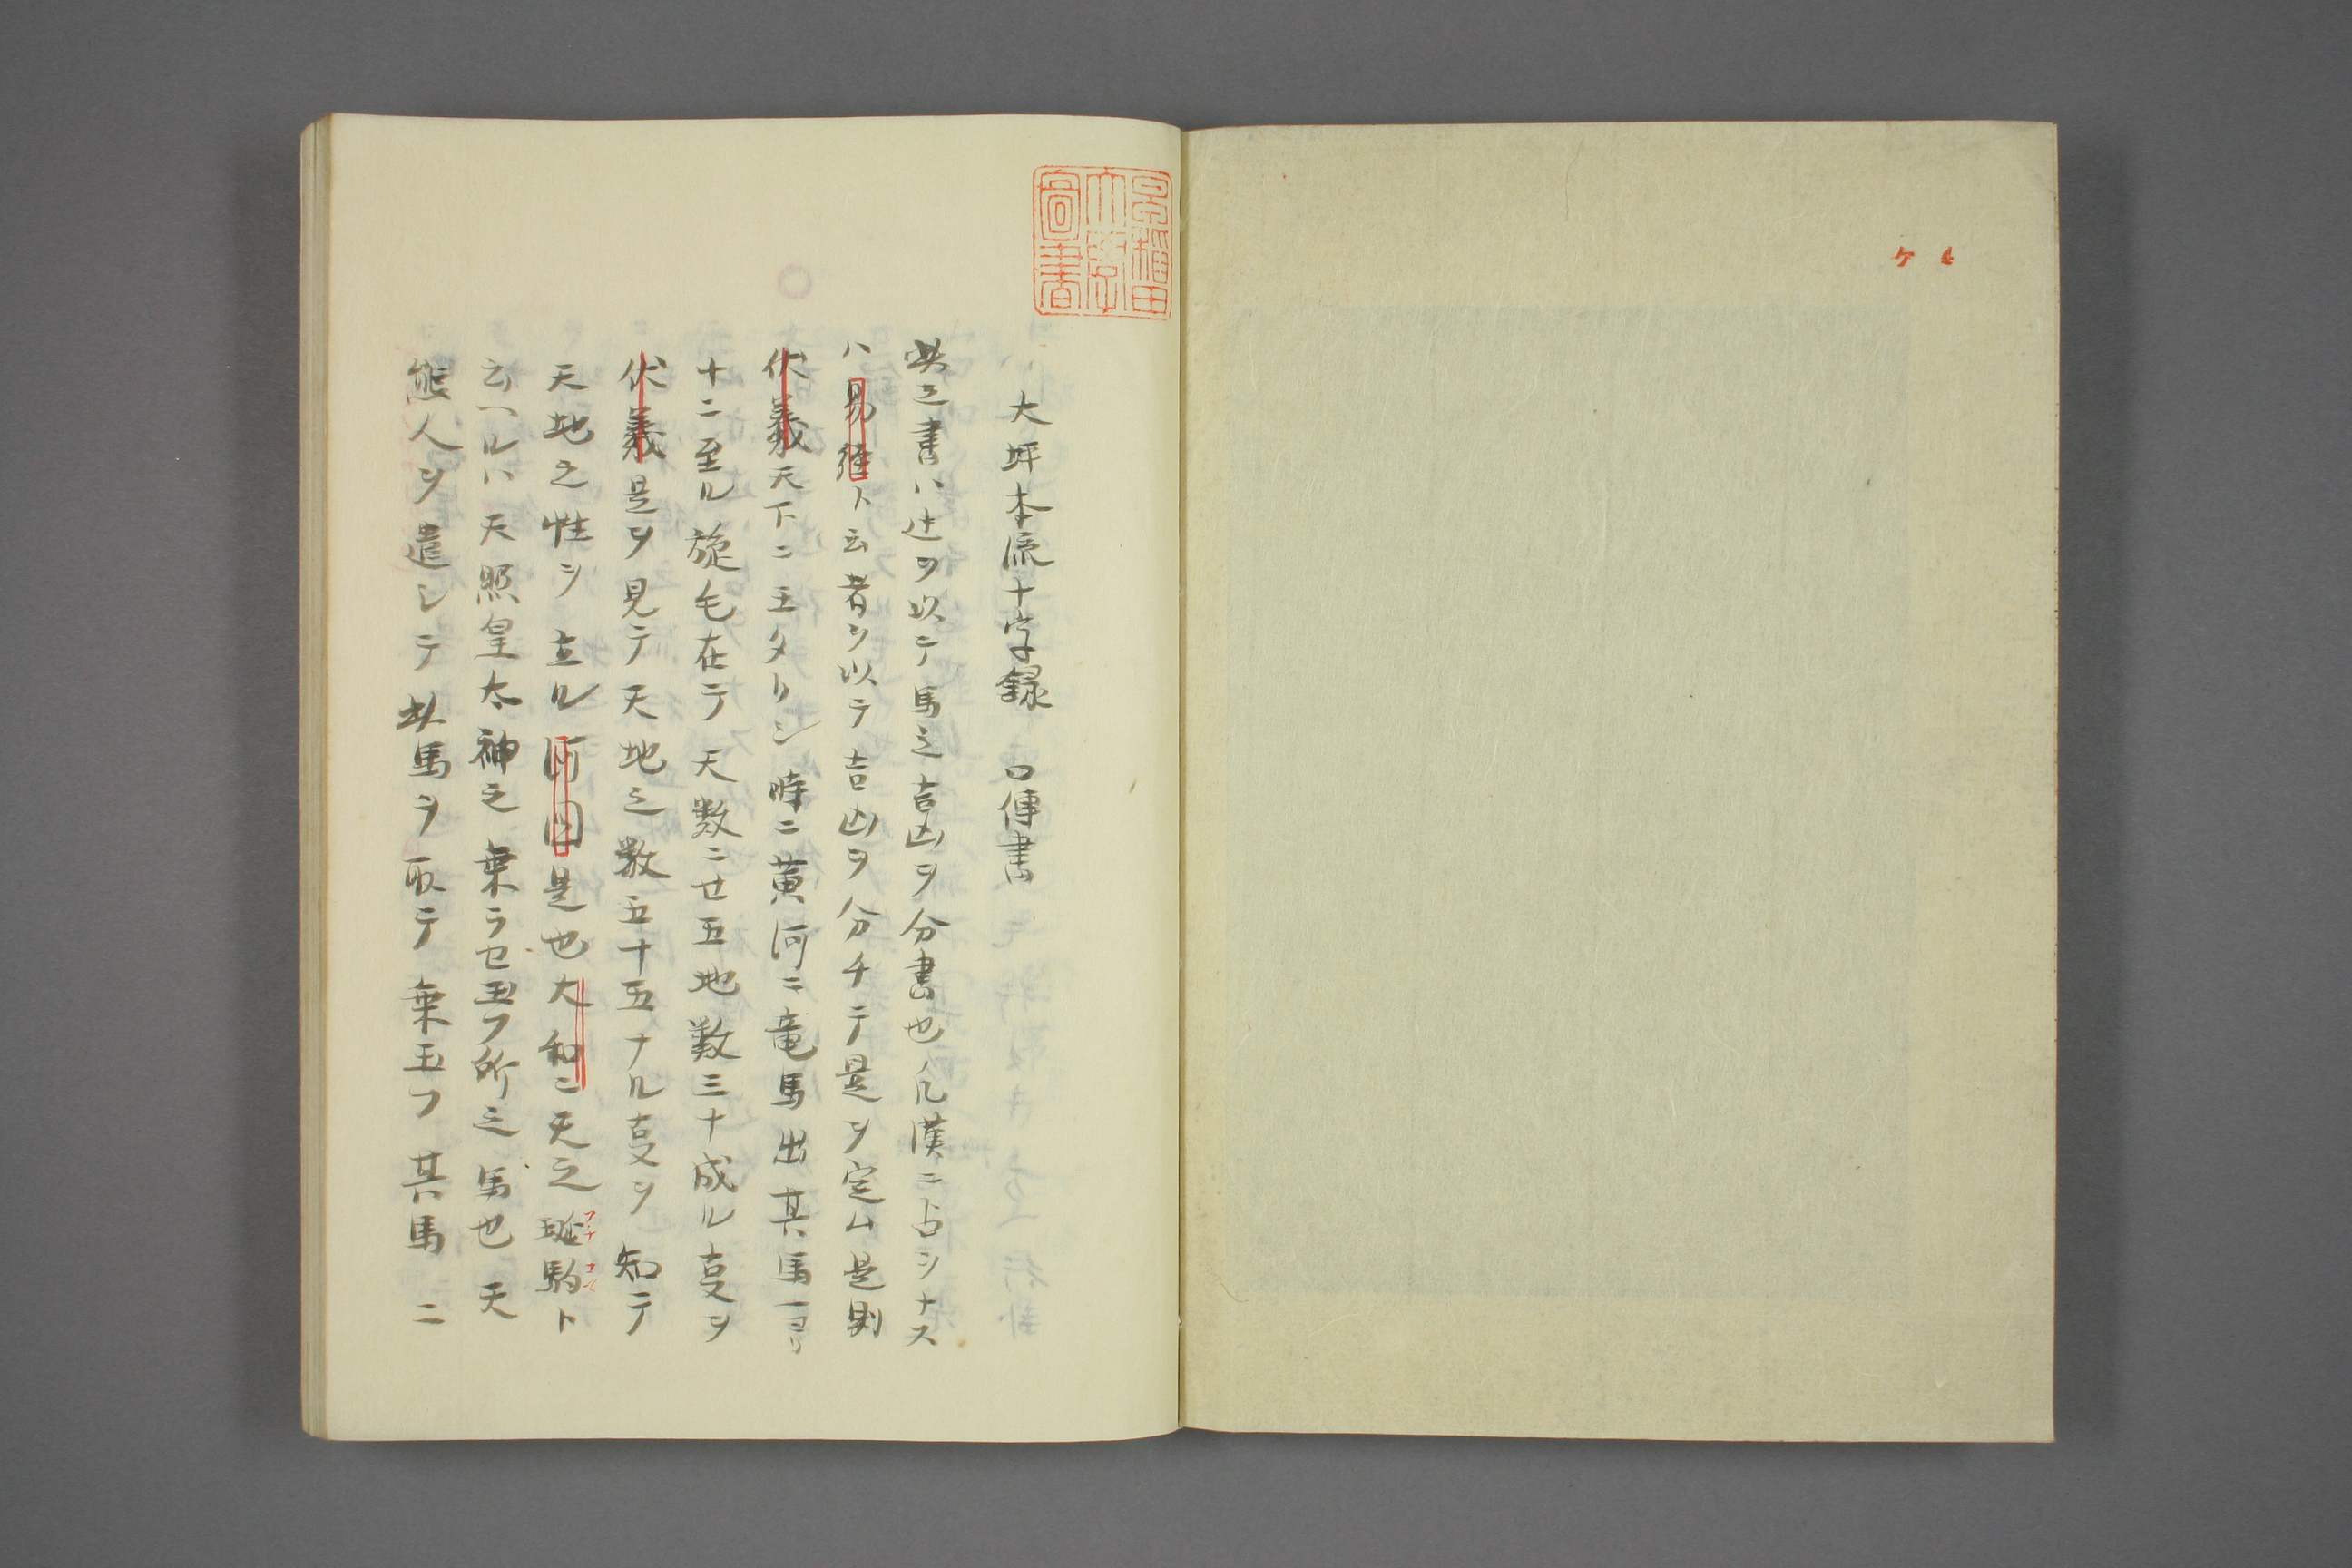 ケ
早稲田
大學
圖書
大坪本流十字録　口傳書
此之書ハ辻ヲ以テ馬之吉凶ヲ分書也凡漢ニ占シナス
ハ易經ト云者ヲ以テ吉凶ヲ分チテ是ヲ定ム是則
伏羲天下ニ王タリシ時ニ黄河ニ竜馬出其馬一ヨリ
十ニ至ル旋毛在テ天数ニ廿五地数三十成ル叓ヲ
伏羲是ヲ見テ天地之数五十五ナル叓ヲ知テ
天地之性ヲ立ル河図是也大和ニ天之駮駒ト
云ヘルハ天照皇太神之乗ラセ玉フ所之馬也天
熊人ヲ遣シテ此馬ヲ取テ乗玉フ其馬ニ